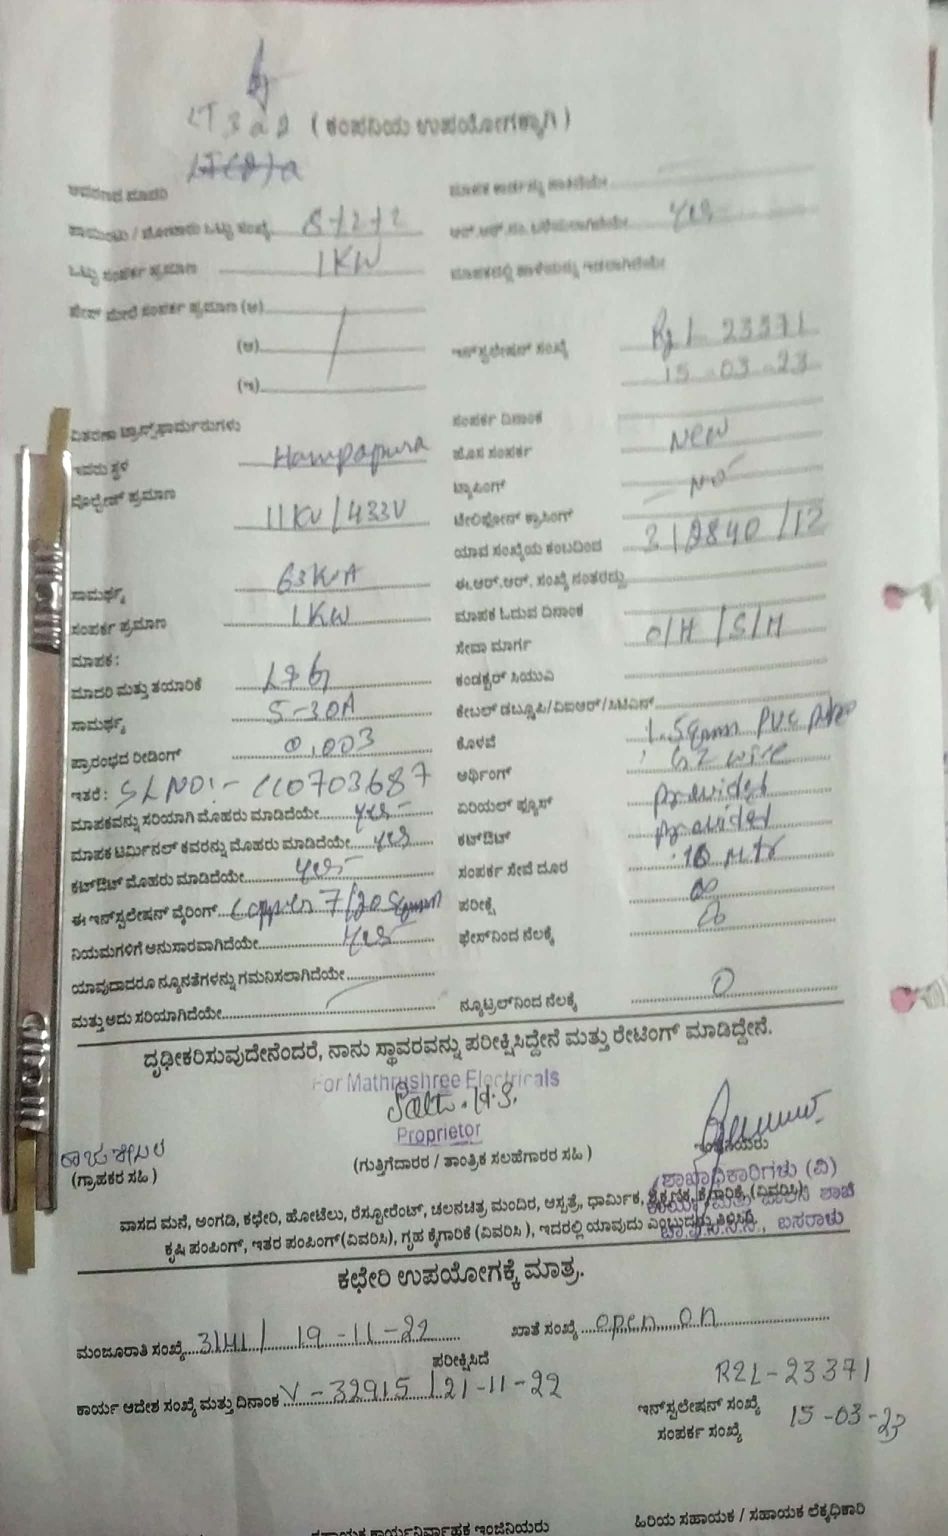 LT 3a2 ( ಕಂಪನಿಯ ಉಪಯೋಗಕ್ಕಾಗಿ )
ಆವರಣದ ಮಾದರಿ
ಒಟ್ಟು ಸಂಖ್ಯೆ 5+2+2 Yes
ಒಟ್ಟು ಸಂಪರ್ಕ ಪ್ರಮಾಣ 1KW
ಫೇಸ್ ಮೇಲೆ ಸಂಪರ್ಕ ಪ್ರಮಾಣ (ಅ)
(ಆ) ಇನ್‌ಸ್ಟಲೇಷನ್ ಸಂಖ್ಯೆ 23371
(ಇ) 15-03-23
ವಿತರಣಾ ಟ್ರಾನ್ಸ್‌ಫಾರ್ಮರುಗಳು ಸಂಪರ್ಕ ದಿನಾಂಕ
ಇವರು ಸ್ಥಳ Hampapura ಹೊಸ ಸಂಪರ್ಕ New
ವೋಲ್ಟೇಜ್ ಪ್ರಮಾಣ 11KV/433V ಟ್ಯಾಪಿಂಗ್ NO
ಟೆಲಿಫೋನ್ ಕ್ರಾಸಿಂಗ್
ಯಾವ ಸಂಖ್ಯೆಯ ಕಂಬದಿಂದ
ಸಾಮರ್ಥ್ಯ 63KVA ಈ.ಆರ್.ಆರ್. ಸಂಖ್ಯೆ ನಂತರದ್ದು
ಸಂಪರ್ಕ ಪ್ರಮಾಣ 1KW ಮಾಪಕ ಓದುವ ದಿನಾಂಕ
ಮಾಪಕ: ಸೇವಾ ಮಾರ್ಗ O/H /S/M
ಮಾದರಿ ಮತ್ತು ತಯಾರಿಕೆ L&G ಕಂಡಕ್ಟರ್ ಸಿಯುವಿ
ಸಾಮರ್ಥ್ಯ 5-30A ಕೇಬಲ್ ಡಬ್ಲ್ಯೂಪಿ/ವಿಐಆರ್/ಸಿಟಿಎಸ್
ಪ್ರಾರಂಭದ ರೀಡಿಂಗ್ 0.003 ಕೊಳವೆ 1.5sqmm PVC pipe
ಇತರೆ: SLNO:- ಅರ್ಥಿಂಗ್ GI wire
ಮಾಪಕವನ್ನು ಸರಿಯಾಗಿ ಮೊಹರು ಮಾಡಿದೆಯೇ Yes ಏರಿಯಲ್ ಫ್ಯೂಸ್ provided
ಮಾಪಕ ಟರ್ಮಿನಲ್ ಕವರನ್ನು ಮೊಹರು ಮಾಡಿದೆಯೇ Yes ಕಟ್‌ಔಟ್ provided
ಕಟ್‌ಔಟ್ ಮೊಹರು ಮಾಡಿದೆಯೇ Yes ಸಂಪರ್ಕ ಸೇವೆ ದೂರ 10 Mtr
ಈ ಇನ್‌ಸ್ಟಲೇಷನ್ ವೈರಿಂಗ್ Copper 7/20 Sqmm ಪರೀಕ್ಷೆ ∞
ನಿಯಮಗಳಿಗೆ ಅನುಸಾರವಾಗಿದೆಯೇ Yes ಫೇಸ್‌ನಿಂದ ನೆಲಕ್ಕೆ
ಯಾವುದಾದರೂ ನ್ಯೂನತೆಗಳನ್ನು ಗಮನಿಸಲಾಗಿದೆಯೇ
ಮತ್ತು ಅದು ಸರಿಯಾಗಿದೆಯೇ ನ್ಯೂಟ್ರಲ್‌ನಿಂದ ನೆಲಕ್ಕೆ 0
ದೃಢೀಕರಿಸುವುದೇನೆಂದರೆ, ನಾನು ಸ್ಥಾವರವನ್ನು ಪರೀಕ್ಷಿಸಿದ್ದೇನೆ ಮತ್ತು ರೇಟಿಂಗ್ ಮಾಡಿದ್ದೇನೆ.
For Mathrushree Electricals
Proprietor
(ಗ್ರಾಹಕರ ಸಹಿ) (ಗುತ್ತಿಗೆದಾರರ / ತಾಂತ್ರಿಕ ಸಲಹೆಗಾರರ ಸಹಿ)
ಶಾಖಾಧಿಕಾರಿಗಳು (ವಿ)
ವಾಸದ ಮನೆ, ಅಂಗಡಿ, ಕಛೇರಿ, ಹೋಟೆಲು, ರೆಸ್ಟೋರೆಂಟ್, ಚಲನಚಿತ್ರ ಮಂದಿರ, ಆಸ್ಪತ್ರೆ, ಧಾರ್ಮಿಕ, ಶೈಕ್ಷಣಿಕ, ಕೈಗಾರಿಕೆ, (ವಿವರಿಸಿ)
ಕೃಷಿ ಪಂಪಿಂಗ್, ಇತರ ಪಂಪಿಂಗ್(ವಿವರಿಸಿ), ಗೃಹ ಕೈಗಾರಿಕೆ (ವಿವರಿಸಿ ), ಇದರಲ್ಲಿ ಯಾವುದು ಎಂಬುದನ್ನು ತಿಳಿಸಿರಿ. ಬಸರಾಳು
ಕಛೇರಿ ಉಪಯೋಗಕ್ಕೆ ಮಾತ್ರ.
ಮಂಜೂರಾತಿ ಸಂಖ್ಯೆ 3141/ 19-11-22 ಖಾತೆ ಸಂಖ್ಯೆ open on
ಪರೀಕ್ಷಿಸಿದೆ
ಕಾರ್ಯ ಆದೇಶ ಸಂಖ್ಯೆ ಮತ್ತು ದಿನಾಂಕ V-32915 /21-11-22 RZL-23371
ಇನ್‌ಸ್ಟಲೇಷನ್ ಸಂಖ್ಯೆ
ಸಂಪರ್ಕ ಸಂಖ್ಯೆ 15-03-23
ಸಹಾಯಕ ಕಾರ್ಯನಿರ್ವಾಹಕ ಇಂಜಿನಿಯರು ಹಿರಿಯ ಸಹಾಯಕ / ಸಹಾಯಕ ಲೆಕ್ಕಾಧಿಕಾರಿ